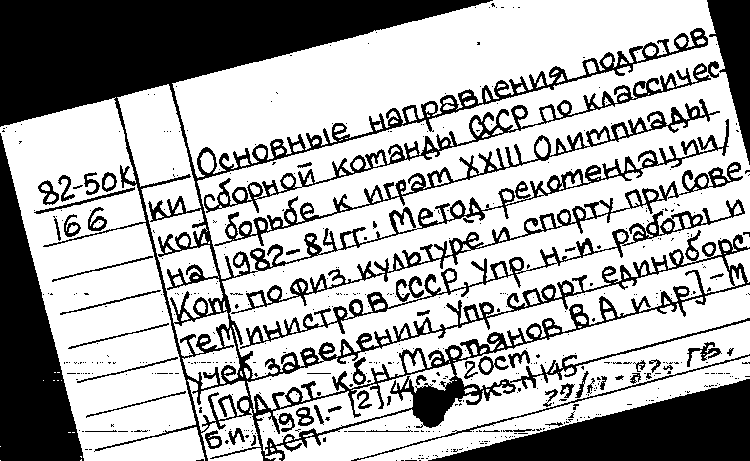 82-50К
166
Основные направления подготов-
ки сборной команды СССР по классичес-
кой борьбе к играм XXIII Олимпиады
на 1982-84гг.: Метод. рекомендации/
Ком. по физ. культуре и спорту при Сове-
те Министров СССР, Упр. н.-и. работы и
учеб. заведений, Упр. спорт. единоборств
;[Подгот. к.б.н Мартьянов В.А. и др].-М
Б.и., 1981.-[2],44с. 20см.
ДСП. Экз.н145.
ГБ.